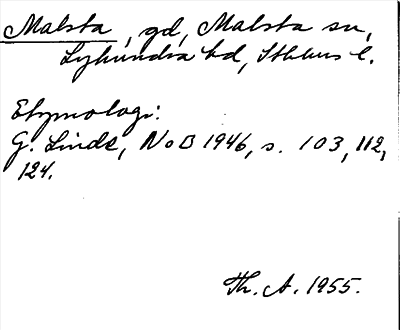 Malsta, gd, Malsta sn,
Lyhundra hd, Sthlms l.
Etymologi:
G. Linde, NoB 1946, s. 103, 112,
124.
Th. A. 1955.